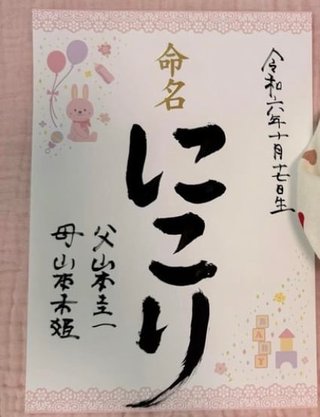 令和六年十月十七日生
命名
にこり
父山本圭一
母山本木姫
BABY